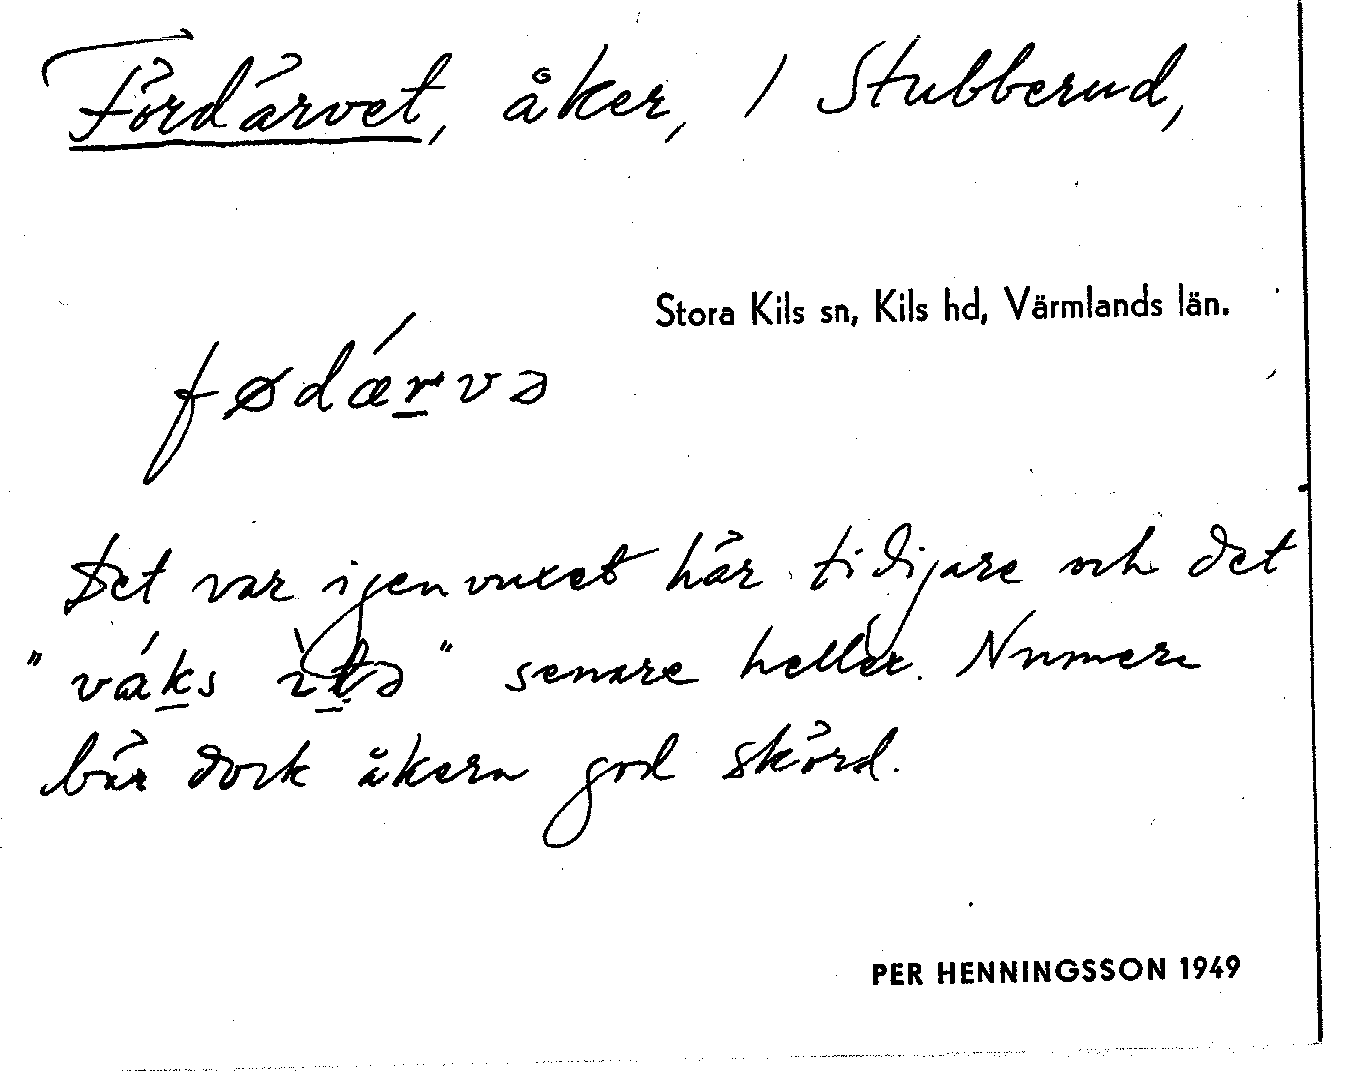 Fördärvet, åker, / Stubberud,
Stora Kils sn, Kils hd, Värmlands län.
fødǽrvə
Det var igenvuxet här tidigare och det
"váks ìtə" senare heller. Numera
bär dock åkern god skörd.
PER HENNINGSSON 1949